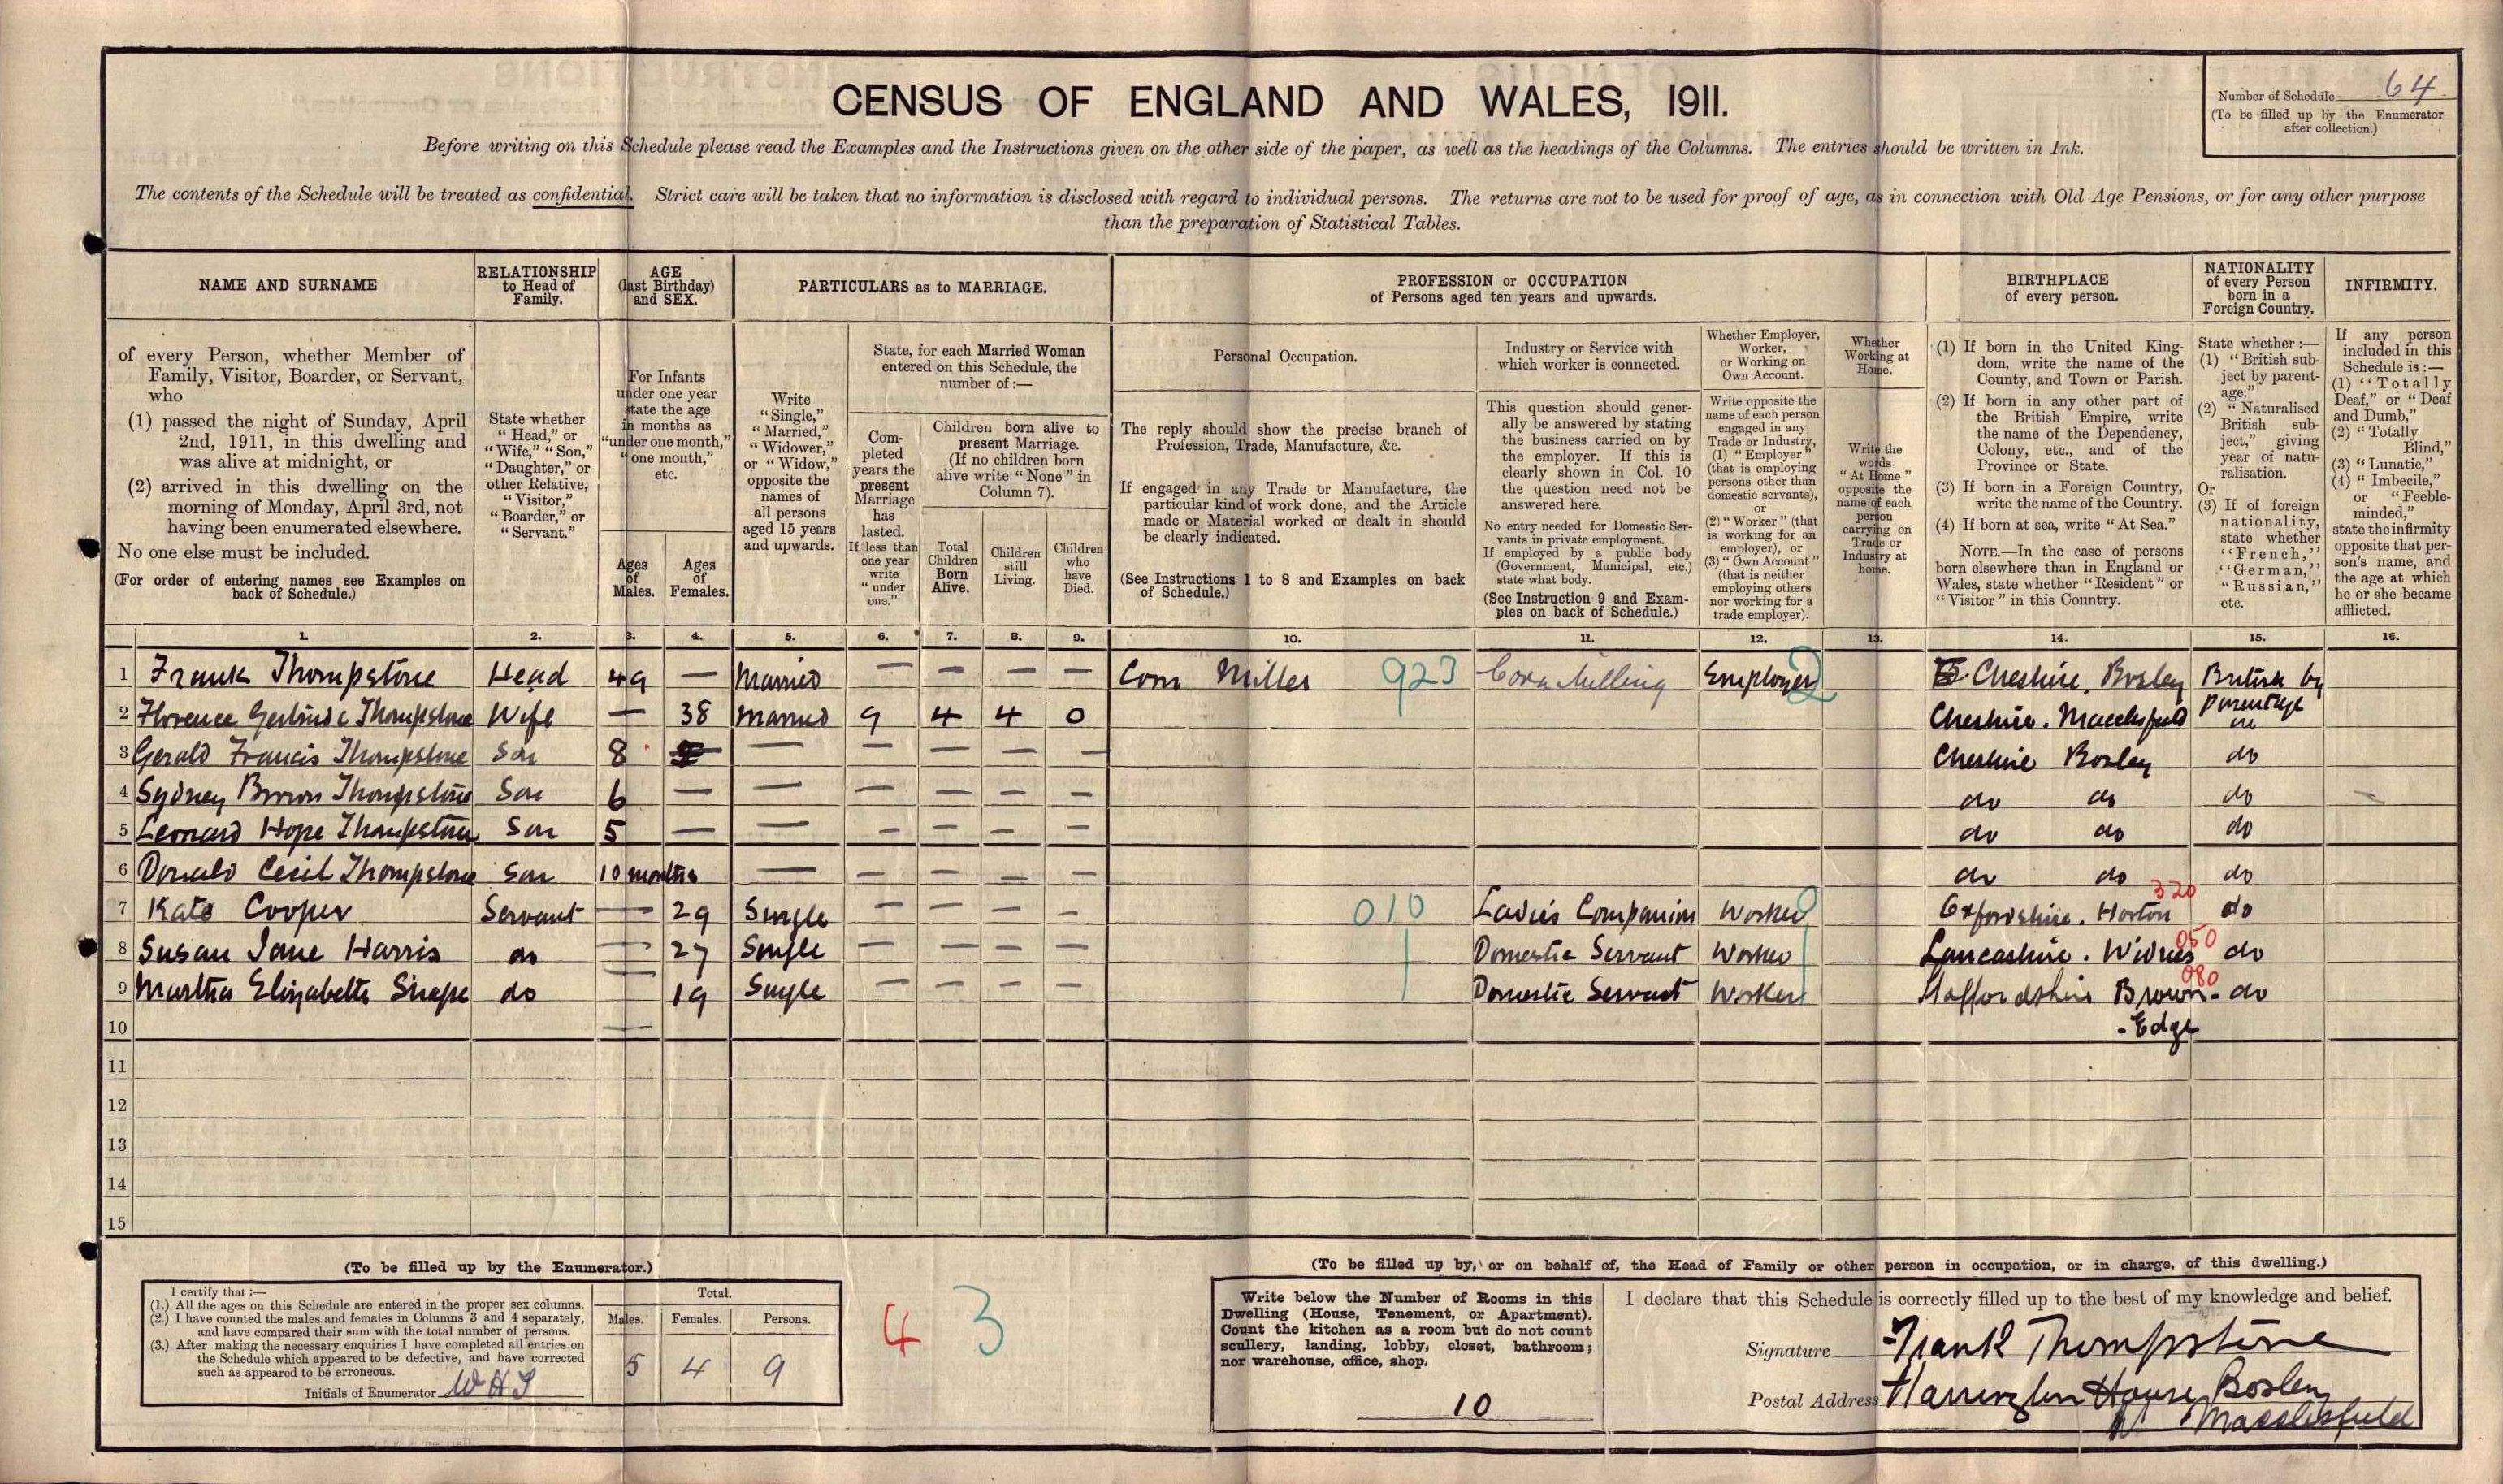 CENSUS OF ENGLAND AND WALES, 1911.
Number of Schedule 64
(To be filled up by the Enumerator
after collection.)
Before writing on this Schedule please read the Examples and the Instructions given on the other side of the paper, as well as the headings of the Columns. The entries should be written in Ink.
The contents of the Schedule will be treated as confidential. Strict care will be taken that no information is disclosed with regard to individual persons. The returns are not to be used for proof of age, as in connection with Old Age Pensions, or for any other purpose
than the preparation of Statistical Tables.
NAME AND SURNAME
of every Person, whether Member of
Family, Visitor, Boarder, or Servant,
who
(1) passed the night of Sunday, April
2nd, 1911, in this dwelling and
was alive at midnight, or
(2) arrived in this dwelling on the
morning of Monday, April 3rd, not
having been enumerated elsewhere.
No one else must be included.
(For order of entering names see Examples on
back of Schedule.)
RELATIONSHIP
to Head of
Family.
State whether
"Head," or
"Wife," "Son,"
"Daughter," or
other Relative,
"Visitor,"
"Boarder," or
"Servant."
AGE
(last Birthday)
and SEX.
For Infants
under one year
state the age
in months as
"under one month,"
"one month,"
etc.
Ages
of
Males.
Ages
of
Females.
PARTICULARS as to MARRIAGE.
Write
"Single,"
"Married,"
"Widower,"
or "Widow,"
opposite the
names of
all persons
aged 15 years
and upwards.
State, for each Married Woman
entered on this Schedule, the
number of :—
Com-
pleted
years the
present
Marriage
has
lasted.
If less than
one year
write
"under
one."
Children born alive to
present Marriage.
(If no children born
alive write "None" in
Column 7).
Total
Children
Born
Alive.
Children
still
Living.
Children
who
have
Died.
PROFESSION or OCCUPATION
of Persons aged ten years and upwards.
Personal Occupation.
The reply should show the precise branch of
Profession, Trade, Manufacture, &c.
If engaged in any Trade or Manufacture, the
particular kind of work done, and the Article
made or Material worked or dealt in should
be clearly indicated.
(See Instructions 1 to 8 and Examples on back
of Schedule.)
Industry or Service with
which worker is connected.
This question should gener-
ally be answered by stating
the business carried on by
the employer. If this is
clearly shown in Col. 10
the question need not be
answered here.
No entry needed for Domestic Ser-
vants in private employment.
If employed by a public body
(Government, Municipal, etc.)
state what body.
(See Instruction 9 and Exam-
ples on back of Schedule.)
Whether Employer,
Worker,
or Working on
Own Account.
Write opposite the
name of each person
engaged in any
Trade or Industry,
(1) "Employer"
(that is employing
persons other than
domestic servants),
or
(2) "Worker" (that
is working for an
employer), or
(3) "Own Account"
(that is neither
employing others
nor working for a
trade employer).
Whether
Working at
Home.
Write the
words
"At Home"
opposite the
name of each
person
carrying on
Trade or
Industry at
home.
BIRTHPLACE
of every person.
(1) If born in the United King-
dom, write the name of the
County, and Town or Parish.
(2) If born in any other part of
the British Empire, write
the name of the Dependency,
Colony, etc., and of the
Province or State.
(3) If born in a Foreign Country,
write the name of the Country.
(4) If born at sea, write "At Sea."
NOTE.—In the case of persons
born elsewhere than in England or
Wales, state whether "Resident" or
"Visitor" in this Country.
NATIONALITY
of every Person
born in a
Foreign Country.
State whether :—
(1) "British sub-
ject by parent-
age."
(2) "Naturalised
British sub-
ject," giving
year of natu-
ralisation.
Or
(3) If of foreign
nationality,
state whether
"French,"
"German,"
"Russian,"
etc.
INFIRMITY.
If any person
included in this
Schedule is :—
(1) "Totally
Deaf," or "Deaf
and Dumb,"
(2) "Totally
Blind,"
(3) "Lunatic,"
(4) "Imbecile,"
or "Feeble-
minded,"
state the infirmity
opposite that per-
son's name, and
the age at which
he or she became
afflicted.
1. 2. 3. 4. 5. 6. 7. 8. 9. 10. 11. 12. 13. 14. 15. 16.
1 Frank Thompstone Head 49 — Married — — — — Corn Miller 923 Corn Milling Employer 2 Cheshire, Bosley British by
parentage
2 Florence Gertrude Thompstone Wife — 38 Married 9 4 4 0 Cheshire. Macclesfield
3 Gerald Francis Thompstone Son 8 — — — — — Cheshire Bosley do
4 Sydney Brown Thompstone Son 6 — — — — — — do do do
5 Leonard Hope Thompstone Son 5 — — — — — — do do do
6 Donald Cecil Thompstone Son 10 months — — — — — do do do
7 Kate Cooper Servant — 29 Single — — — — 010 Ladies Companion Worker Oxfordshire. Horton 320 do
8 Susan Jane Harris do — 27 Single — — — — Domestic Servant Worker Lancashire. Widnes 050 do
9 Martha Elizabeth Snape do — 19 Single — — — — Domestic Servant Worker Staffordshire Brown- 080 do
10 — -Edge
11
12
13
14
15
(To be filled up by the Enumerator.)
I certify that :—
(1.) All the ages on this Schedule are entered in the proper sex columns.
(2.) I have counted the males and females in Columns 3 and 4 separately,
and have compared their sum with the total number of persons.
(3.) After making the necessary enquiries I have completed all entries on
the Schedule which appeared to be defective, and have corrected
such as appeared to be erroneous.
Initials of Enumerator
Total.
Males. Females. Persons.
5 4 9
4 3
(To be filled up by, or on behalf of, the Head of Family or other person in occupation, or in charge, of this dwelling.)
Write below the Number of Rooms in this
Dwelling (House, Tenement, or Apartment).
Count the kitchen as a room but do not count
scullery, landing, lobby, closet, bathroom;
nor warehouse, office, shop.
10
I declare that this Schedule is correctly filled up to the best of my knowledge and belief.
Signature Frank Thompstone
Postal Address Harrington House, Bosley
Macclesfield